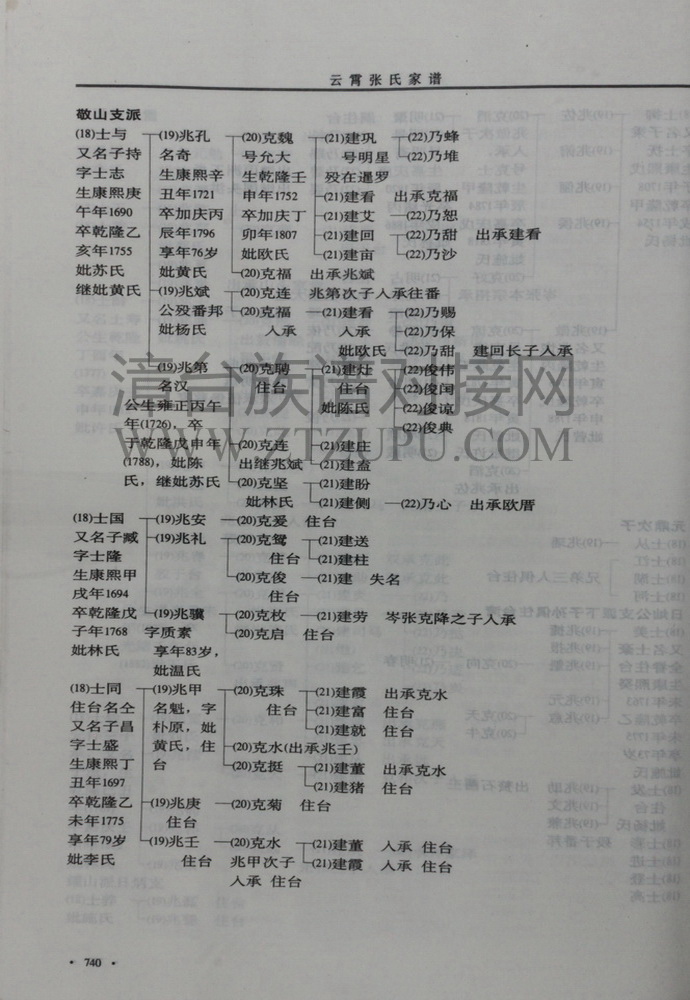 云霄张氏家谱
敬山支派
(18)士与 (19)兆孔 (20)克魏 (21)建巩 (22)乃蜂
又名子持 名奇 号允大 号明星 (22)乃堆
字士志 生康熙辛 生乾隆壬 殁在暹罗
生康熙庚 丑年1721 申年1752 (21)建看 出承克福
午年1690 卒加庆丙 卒加庆丁 (21)建艾 (22)乃恕
卒乾隆乙 辰年1796 卯年1807 (21)建回 (22)乃甜 出承建看
亥年1755 享年76岁 妣欧氏 (21)建亩 (22)乃沙
妣苏氏 妣黄氏 (20)克福 出承兆斌
继妣黄氏 (19)兆斌 (20)克连 兆第次子入承往番
公殁番邦 (20)克福 (21)建看 (22)乃赐
妣杨氏 入承 入承 (22)乃保
妣欧氏 (22)乃甜 建回长子入承
(19)兆第 (20)克聘 (21)建灶 (22)俊伟
名汉 住台 住台 (22)俊闰
公生雍正丙午 妣陈氏 (22)俊谅
年(1726)，卒 (22)俊典
于乾隆戊申年 (20)克连 (21)建庄
(1788)，妣陈 出继兆斌 (21)建盍
氏，继妣苏氏 (20)克坚 (21)建盼
妣林氏 (21)建侧 (22)乃心 出承欧厝
(18)士国 (19)兆安 (20)克爱 住台
又名子臧 (19)兆礼 (20)克鸳 (21)建送
字士隆 住台 (21)建柱
生康熙甲 (20)克俊 (21)建 失名
戌年1694 住台
卒乾隆戊 (19)兆骥 (20)克枚 (21)建劳 岑张克降之子入承
子年1768 字质素 (20)克启 住台
妣林氏 享年83岁，
妣温氏
(18)士同 (19)兆甲 (20)克珠 (21)建霞 出承克水
住台名仝 名魁，字 住台 (21)建富 住台
又名子昌 朴原，妣 (21)建就 住台
字士盛 黄氏，住 (20)克水(出承兆壬)
生康熙丁 台 (20)克挺 (21)建董 出承克水
丑年1697 (21)建猪 住台
卒乾隆乙 (19)兆庚 (20)克菊 住台
未年1775 住台
享年79岁 (19)兆壬 (20)克水 (21)建董 入承 住台
妣李氏 住台 兆甲次子 (21)建霞 入承 住台
入承 住台
漳台族谱对接网
WWW.ZTZUPU.COM
· 740 ·